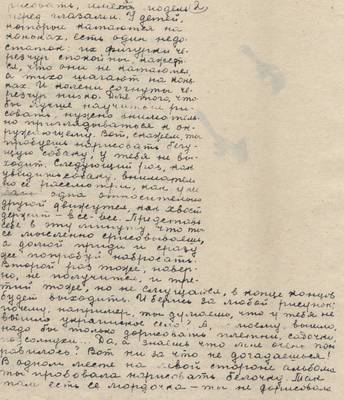 рисовать, иметь модель
перед глазами. У детей,
которые катаются на
коньках, есть один недо-
статок: их фигурки че-
ресчур спокойны. Кажет-
ся, что они не катаются,
а тихо шагают на конь-
ках. И колени согнуты че-
ресчур низко. Для того, что
бы лучше научиться ри-
совать, нужно вниматель-
но приглядываться к ок-
ружающему. Вот, скажем, ты
пробуешь нарисовать бегу-
щую собаку, у тебя не вы-
ходит. Следующий раз, как
увидишь собаку, вниматель
но её рассмотри, как у неё
одна относительно
другой движутся, как хвост
держит – все-все. Представь
себе в эту минуту, что ты
её мысленно срисовываешь,
а домой приди и сразу
же попробуй набросать.
Второй раз тоже, навер-
но, не получится, и тре-
тий тоже, но не смущайся, в конце концов
будет выходить. И берись за любой рисунок:
почему, например, ты думаешь, что у тебя не
вышло украинское село? А по-моему, вышло,
надо бы только дорисовать плетни, садочки,
подсолнухи. Да, а знаешь что мне очень пон
равилось? Вот ни за что не догадаешься!
В одном месте на левой стороне альбома
ты пробовала нарисовать белочку. Там
там есть её мордочка – ты не дорисовала